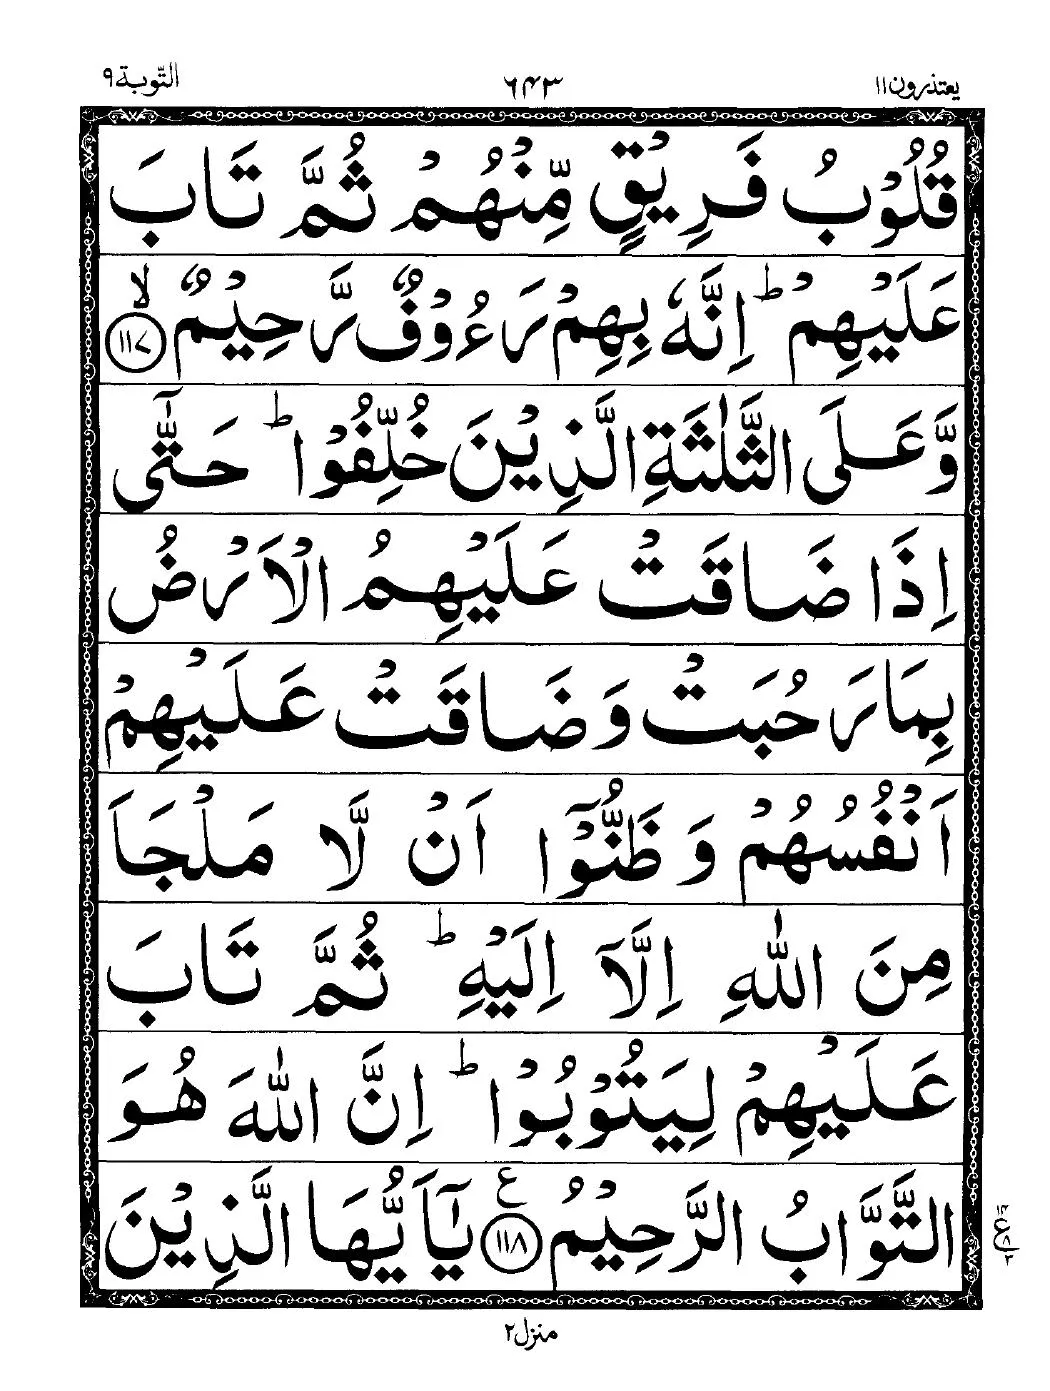 یعتذرون ۱۱ ۶۴۳ التّوبة ۹
قُلُوْبُ فَرِيْقٍ مِّنْهُمْ ثُمَّ تَابَ
عَلَيْهِمْ ؕ اِنَّهٗ بِهِمْ رَءُوْفٌ رَّحِيْمٌ ۙ ﴿۱۱۷﴾
وَّعَلَى الثَّلٰثَةِ الَّذِيْنَ خُلِّفُوْا ؕ حَتّٰٓى
اِذَا ضَاقَتْ عَلَيْهِمُ الْاَرْضُ
بِمَا رَحُبَتْ وَضَاقَتْ عَلَيْهِمْ
اَنْفُسُهُمْ وَظَنُّوْٓا اَنْ لَّا مَلْجَاَ
مِنَ اللّٰهِ اِلَّاۤ اِلَيْهِ ؕ ثُمَّ تَابَ
عَلَيْهِمْ لِيَتُوْبُوْا ؕ اِنَّ اللّٰهَ هُوَ
التَّوَّابُ الرَّحِيْمُ ﴿۱۱۸﴾ ع يٰۤاَيُّهَا الَّذِيْنَ
۱۴
ع ۸
۳
منزل ۲